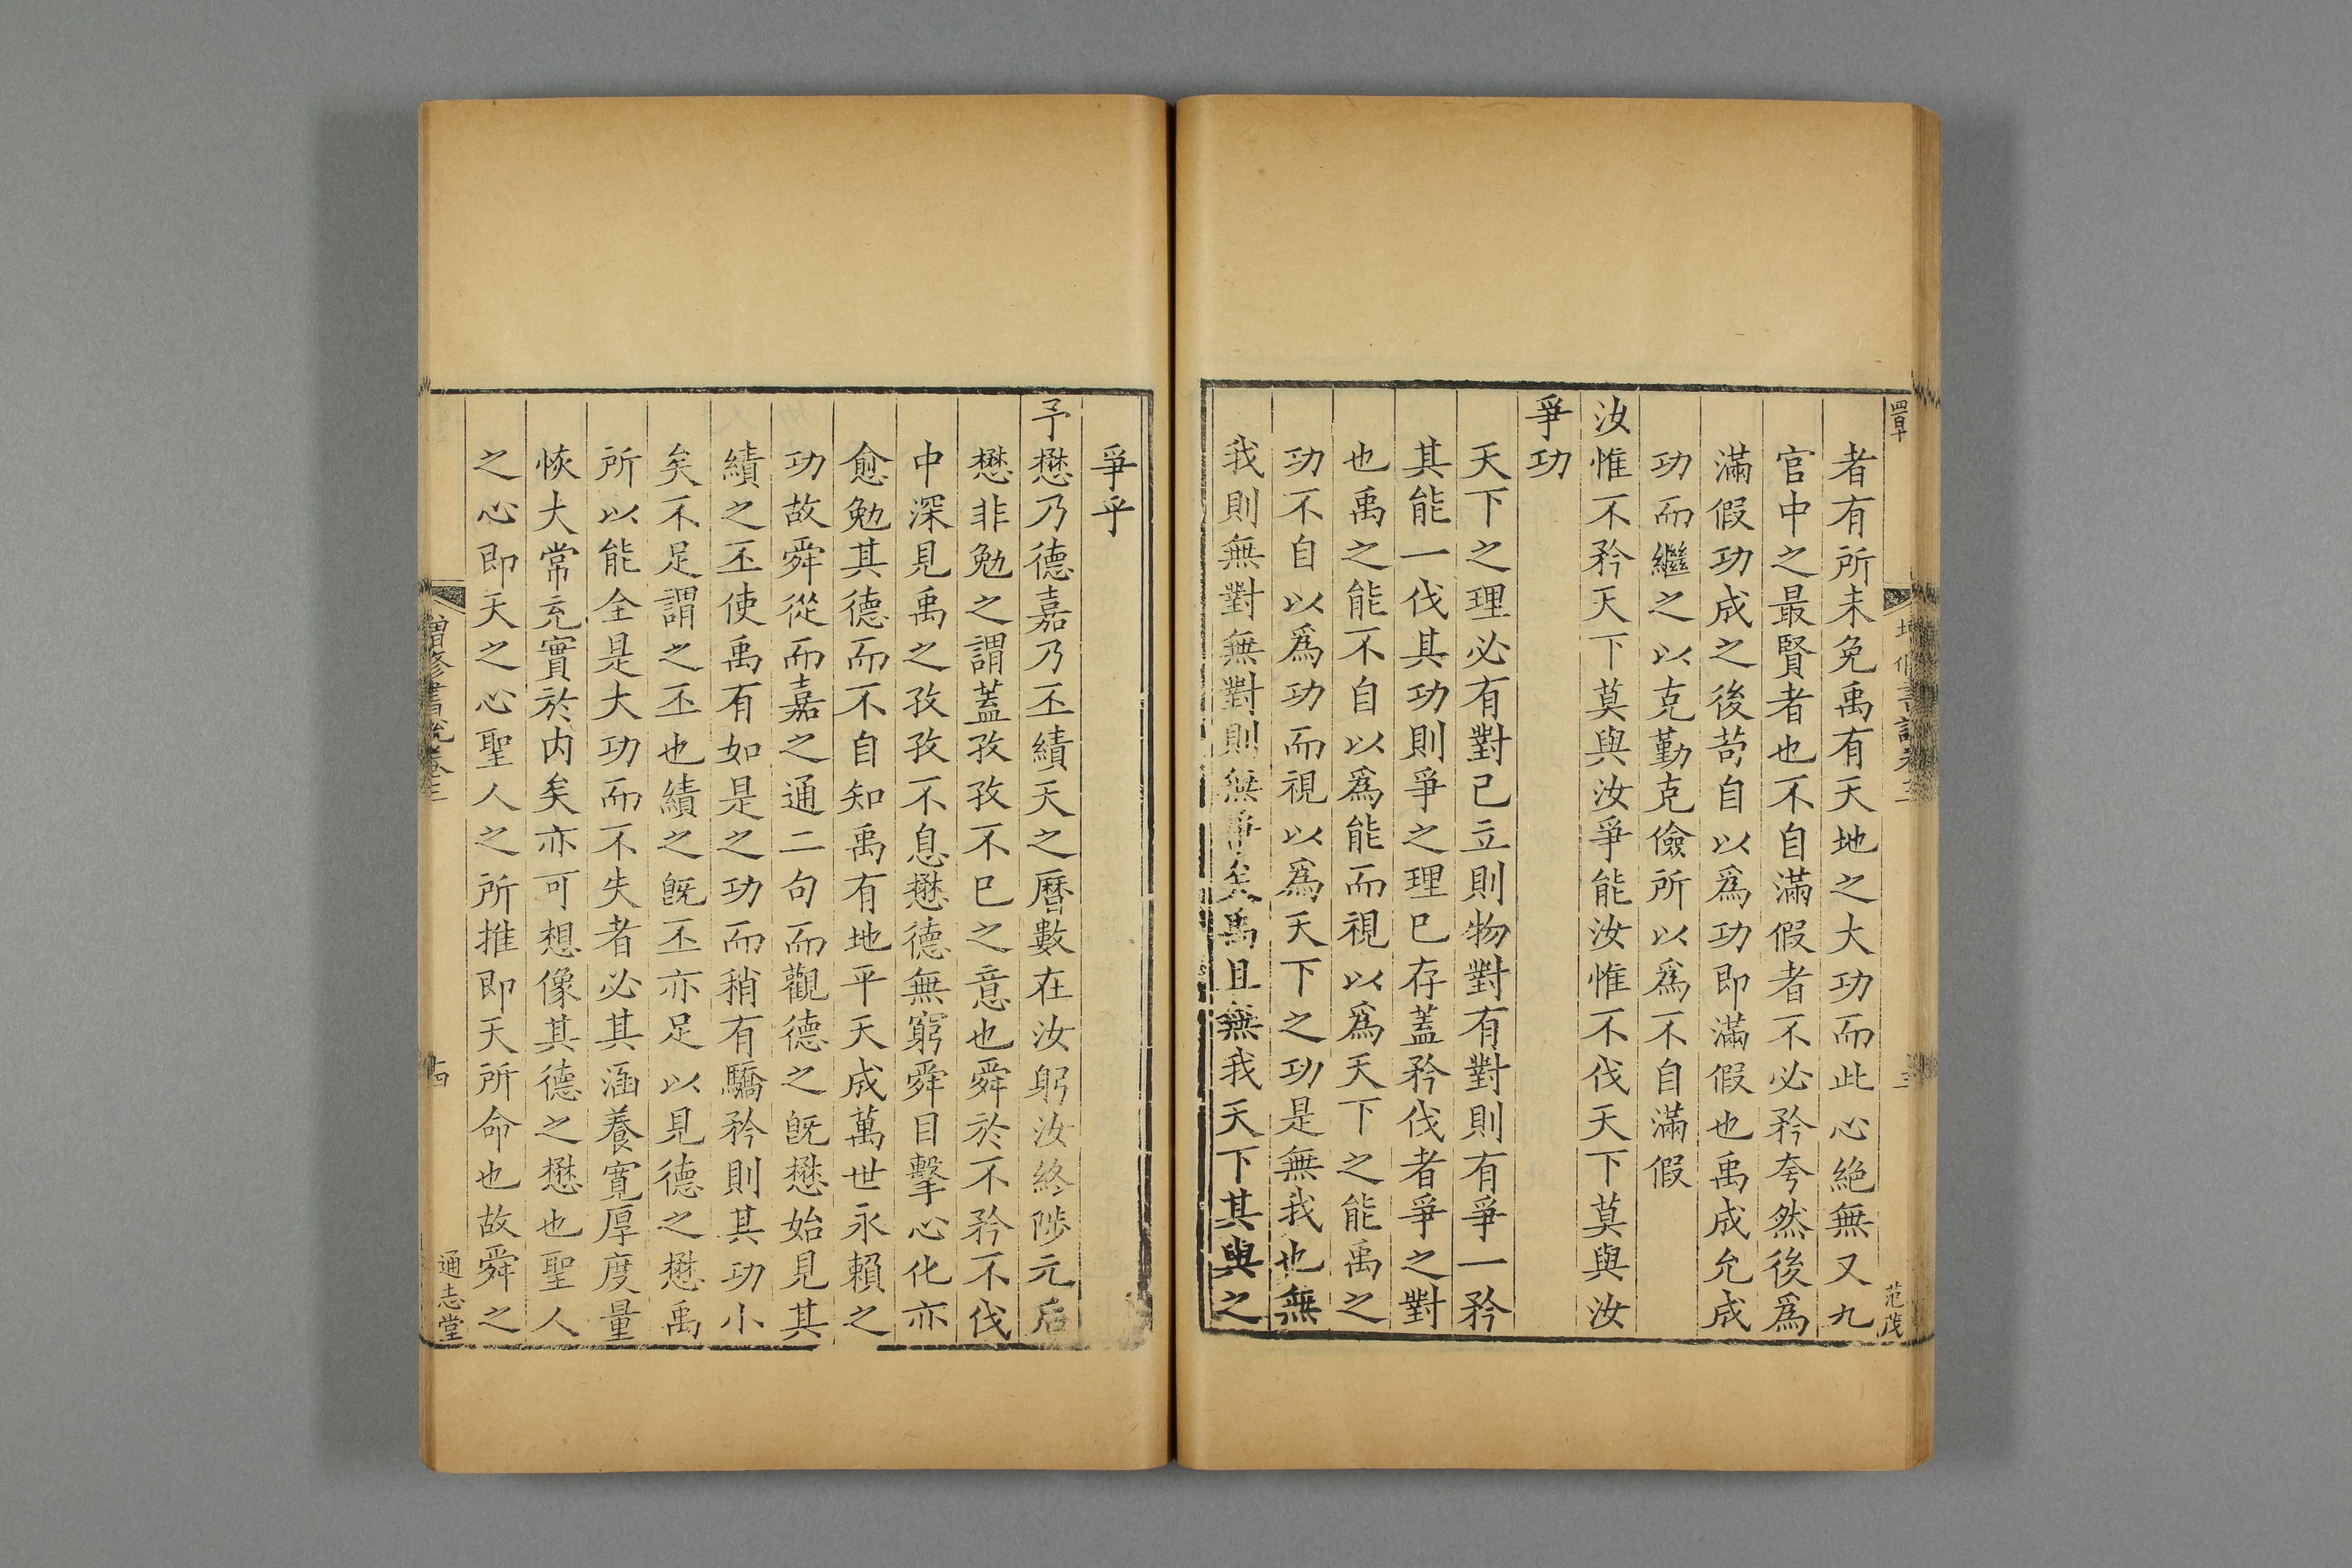 者有所未免禹有天地之大功而此心絶無又九
官中之最賢者也不自滿假者不必矜夸然後爲
滿假功成之後苟自以爲功即滿假也禹成允成
功而繼之以克勤克儉所以爲不自滿假
汝惟不矜天下莫與汝爭能汝惟不伐天下莫與汝
爭功
天下之理必有對己立則物對有對則有爭一矜
其能一伐其功則爭之理已存蓋矜伐者爭之對
也禹之能不自以爲能而視以爲天下之能禹之
功不自以爲功而視以爲天下之功是無我也無
我則無對無對則無爭矣禹且無我天下其與之
范茂
爭乎
予懋乃德嘉乃丕績天之曆數在汝躬汝終陟元后
懋非勉之謂蓋孜孜不已之意也舜於不矜不伐
中深見禹之孜孜不息懋德無窮舜目擊心化亦
愈勉其德而不自知禹有地平天成萬世永賴之
功故舜從而嘉之通二句而觀德之旣懋始見其
績之丕使禹有如是之功而稍有驕矜則其功小
矣不足謂之丕也績之旣丕亦足以見德之懋禹
所以能全是大功而不失者必其涵養寬厚度量
恢大常充實於内矣亦可想像其德之懋也聖人
之心即天之心聖人之所推即天所命也故舜之
增修書說卷三
十四
通志堂